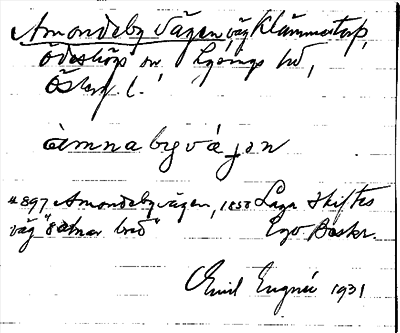 Åmmondeby vägen, väg Klämmestorp,
Ödeshögs sn Lysings hd,
Österg. l.
åmnabyvägen
#897 Ammondebyvägen, 1858 Laga Skiftes
väg "8 alnar bred" Ego Beskr.
Emil Engné 1931